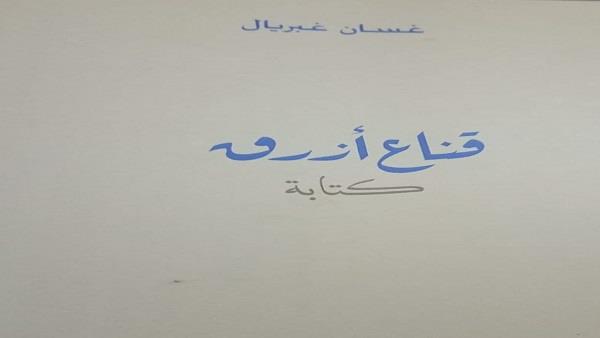 غسان غبريال
قناع أزرق
كتابة